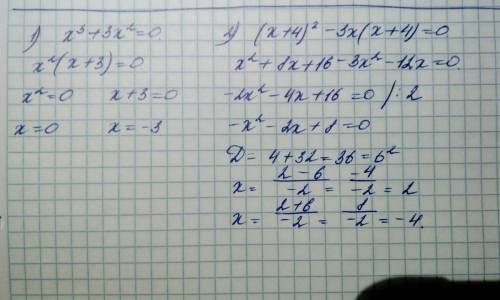 1) x³+3x²=0.
x²(x+3)=0
x²=0 x+3=0
x=0 x=-3
2) (x+4)²-3x(x+4)=0
x²+8x+16-3x²-12x=0.
-2x²-4x+16=0 /:2
-x²-2x+8=0
D= 4+32=36=6²
x= (2-6)/(-2) = (-4)/(-2) = 2
x= (2+6)/(-2) = 8/(-2) = -4.